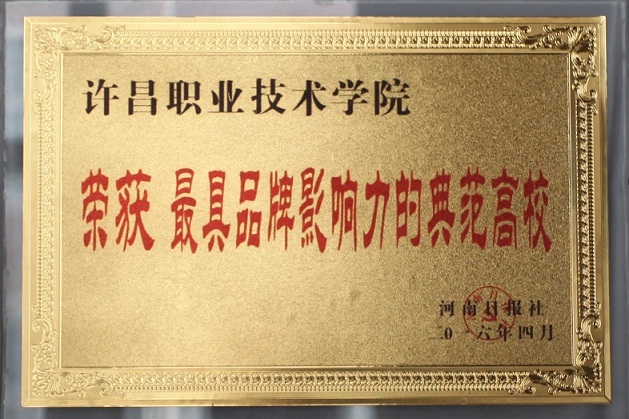 许昌职业技术学院
荣获 最具品牌影响力的典范高校
河南日报社
二0一六年四月